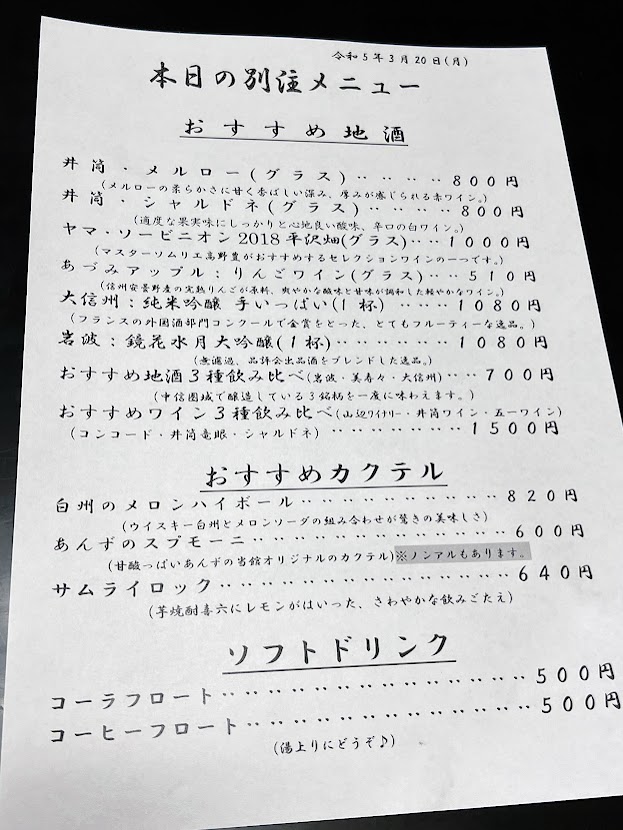 令和5年3月20日(月)
本日の別注メニュー
おすすめ地酒
井筒・メルロー(グラス)‥‥‥800円
(メルローの柔らかさに甘く香ばしい深み、厚みが感じられる赤ワイン。)
井筒・シャルドネ(グラス)‥‥‥800円
(適度な果実味にしっかりと心地良い酸味、辛口の白ワイン。)
ヤマ・ソービニオン2018平沢畑(グラス)‥‥1000円
(マスターソムリエ高野豊がおすすめするセレクションワインの一つです。)
あづみアップル:りんごワイン(グラス)‥‥510円
(信州安曇野産の完熟りんごが原料、爽やかな酸味と甘味が調和した軽やかなワイン。)
大信州:純米吟醸 手いっぱい(1杯)‥‥1080円
(フランスの外国酒部門コンクールで金賞をとった、とてもフルーティーな逸品。)
岩波:鏡花水月大吟醸(1杯)‥‥‥‥1080円
(無濾過、品評会出品酒をブレンドした逸品。)
おすすめ地酒3種飲み比べ(岩波・美寿々・大信州)‥‥700円
(中信圏域で醸造している3銘柄を一度に味わえます。)
おすすめワイン3種飲み比べ(山辺ワイナリー・井筒ワイン・五一ワイン)
(コンコード・井筒竜眼・シャルドネ)‥‥‥‥‥‥‥1500円
おすすめカクテル
白州のメロンハイボール‥‥‥‥‥‥‥‥‥820円
(ウイスキー白州とメロンソーダの組み合わせが驚きの美味しさ)
あんずのスプモーニ‥‥‥‥‥‥‥‥‥‥‥600円
(甘酸っぱいあんずの当館オリジナルのカクテル)※ノンアルもあります。
サムライロック‥‥‥‥‥‥‥‥‥‥‥‥‥640円
(芋焼酎喜六にレモンがはいった、さわやかな飲みごたえ)
ソフトドリンク
コーラフロート‥‥‥‥‥‥‥‥‥‥‥‥‥500円
コーヒーフロート‥‥‥‥‥‥‥‥‥‥‥‥500円
(湯上りにどうぞ♪)